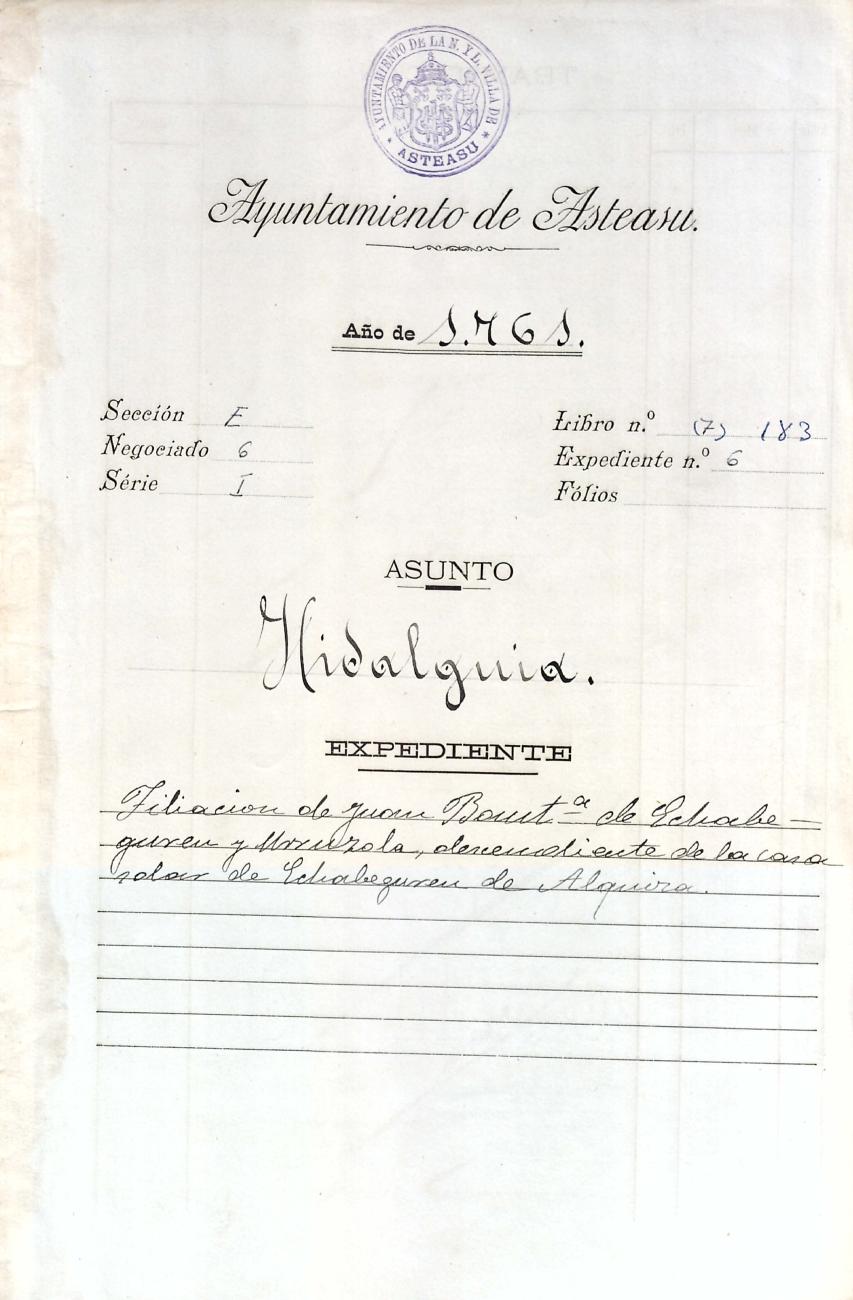 AYUNTAMIENTO DE LA N. Y L. VILLA DE
* ASTEASU *
Ayuntamiento de Asteasu.
Año de 1.761.
Sección E
Negociado 6
Série I
Libro n.º (7) 183
Expediente n.º 6
Fólios
ASUNTO
Hidalguia.
EXPEDIENTE
Filiacion de Juan Baut.ª de Echabe-
guren y Urruzola, descendiente de la casa
solar de Echabeguren de Alquiza.